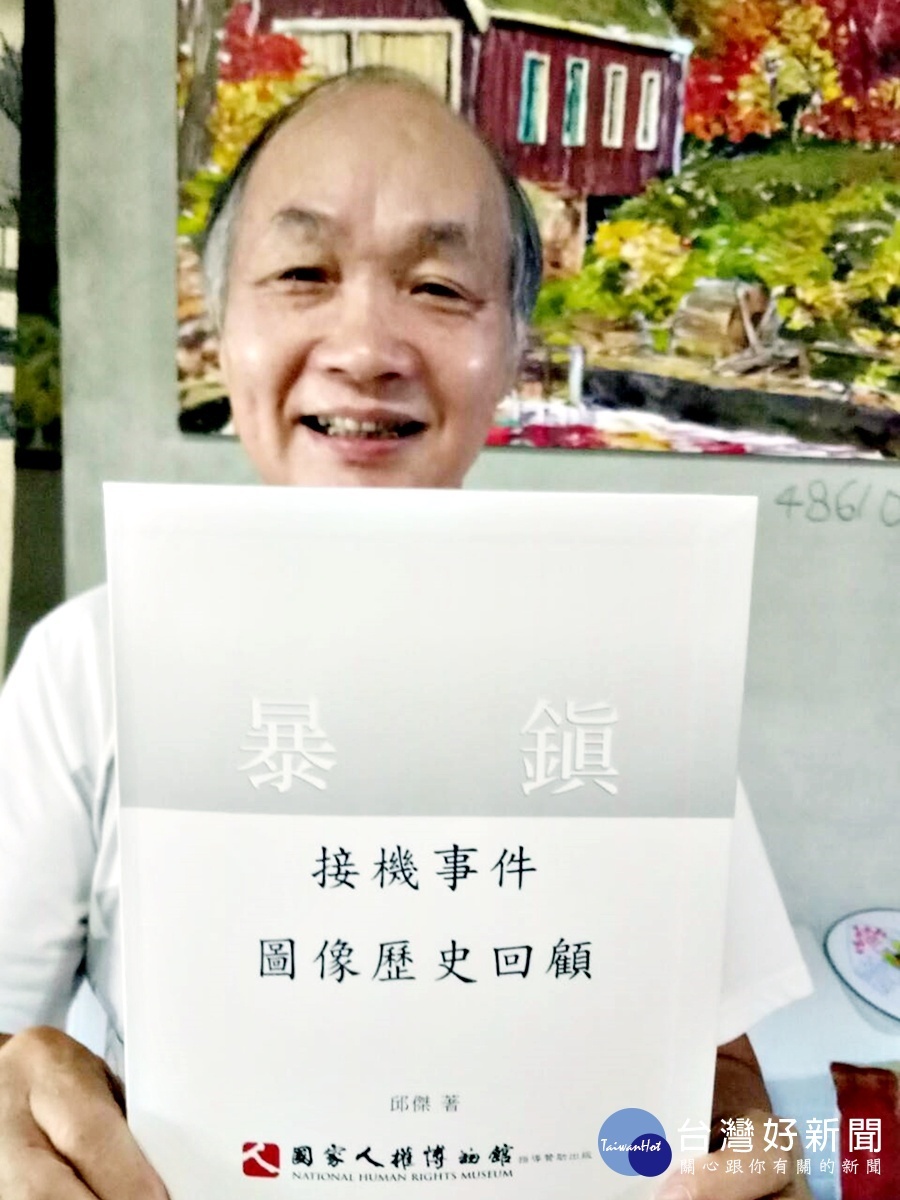 48610
暴 鎮
接機事件
圖像歷史回顧
邱傑 著
國家人權博物館 指導贊助出版
NATIONAL HUMAN RIGHTS MUSEUM
TaiwanHot
台灣好新聞
關心跟你有關的新聞